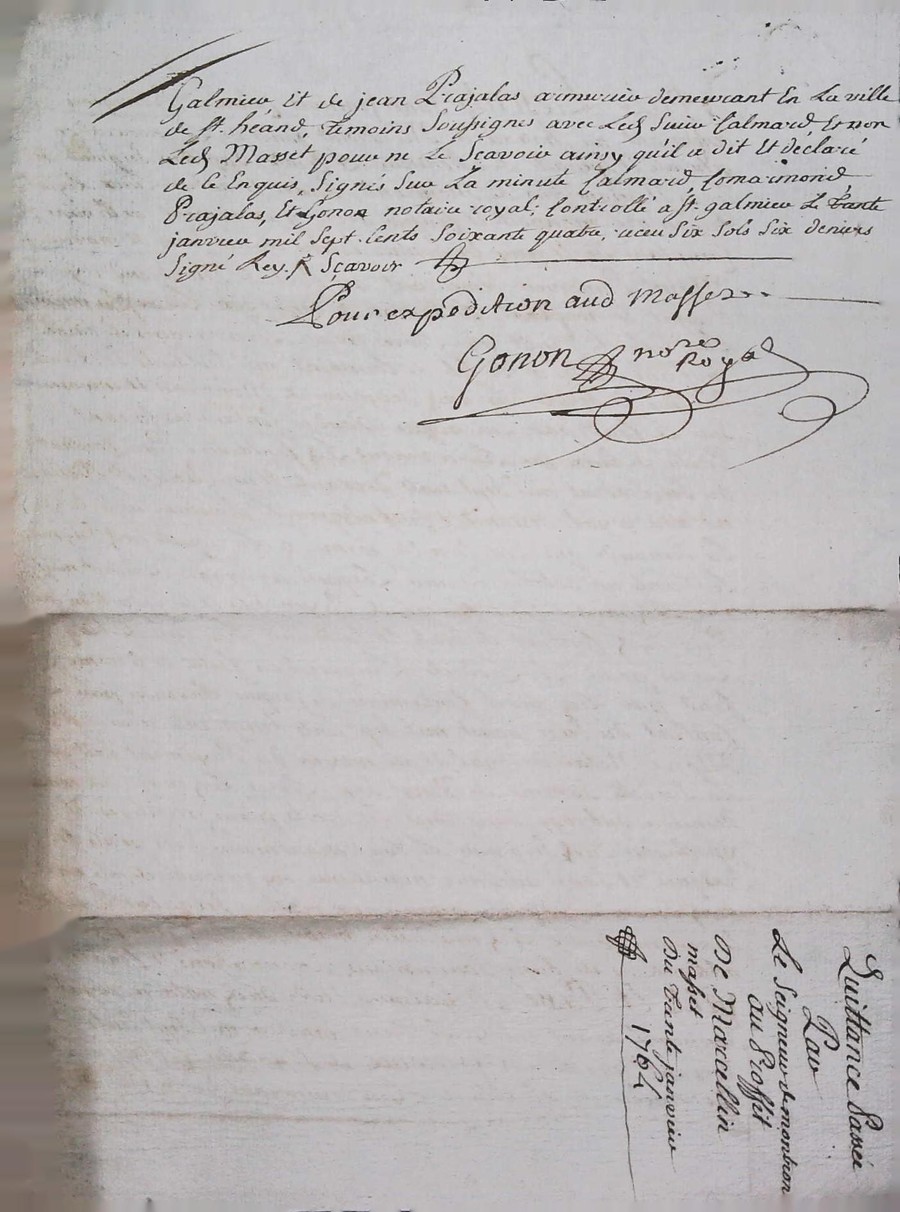 Galmier Et de jean Prajalas armurier demeurant En La ville
de st. héand, témoins Soussignés avec Led. Sieur Calmard, Et non
Led. Masset pour ne Le Scavoir ainsy qu'il a dit Et déclaré
de ce Enquis, Signés Sur La minute Calmard, Comarmond,
Prajalas, Et Gonon notaire royal; Controllé a st. galmier Le trante
janvier mil Sept Cents Soixante quatre, recu Six Sols Six deniers
Signé Rey. Scavoir
Pour expédition aud masset
Gonon nore
Royal
Quittance Passée
Par
Le Seigneur de montron
au Proffit
De Marcellin
masset
Du trante janvier
1764